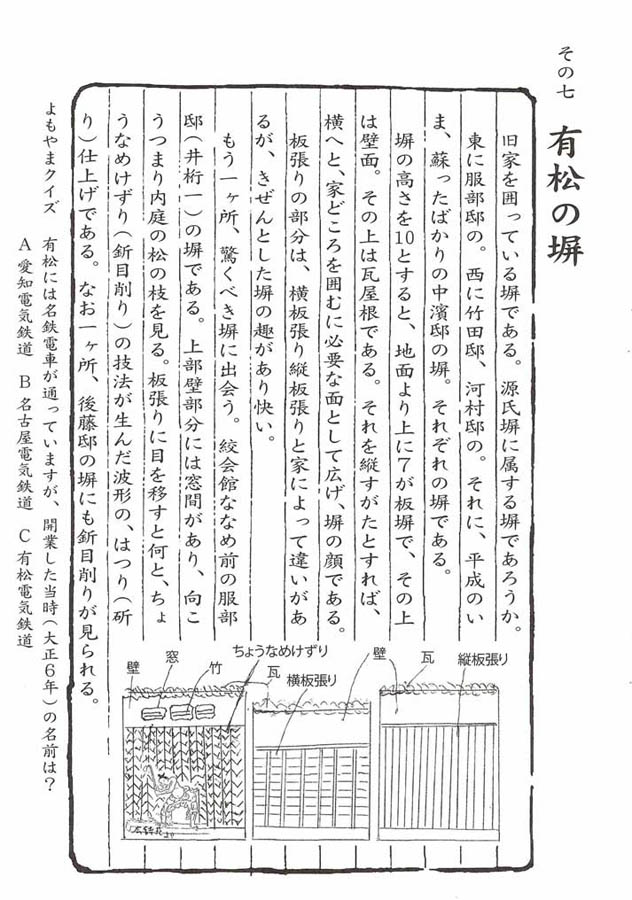 その七
有松の塀
旧家を囲っている塀である。源氏塀に属する塀であろうか。
東に服部邸の。西に竹田邸、河村邸の。それに、平成のい
ま、蘇ったばかりの中濱邸の塀。それぞれの塀である。
塀の高さを10とすると、地面より上に7が板塀で、その上
は壁面。その上は瓦屋根である。それを縦すがたとすれば、
横へと、家どころを囲むに必要な面として広げ、塀の顔である。
板張りの部分は、横板張り縦板張りと家によって違いがあ
るが、きぜんとした塀の趣があり快い。
もう一ヶ所、驚くべき塀に出会う。絞会館ななめ前の服部
邸(井桁一)の塀である。上部壁部分には窓間があり、向こ
うつまり内庭の松の枝を見る。板張りに目を移すと何と、ちょ
うなめけずり(釿目削り)の技法が生んだ波形の、はつり(斫
り)仕上げである。なお一ヶ所、後藤邸の塀にも釿目削りが見られる。
縦板張り
瓦
壁
横板張り
瓦
ちょうなめけずり
竹
窓
壁
よもやまクイズ 有松には名鉄電車が通っていますが、開業した当時(大正6年)の名前は?
A 愛知電気鉄道 B 名古屋電気鉄道 C 有松電気鉄道